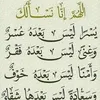 اللهم إنا نسألك
يسرا ليس بعده عسر
وغنى ليس بعده فقر
وأمنا ليس بعده خوف
وسعادة ليس بعدها شقاء